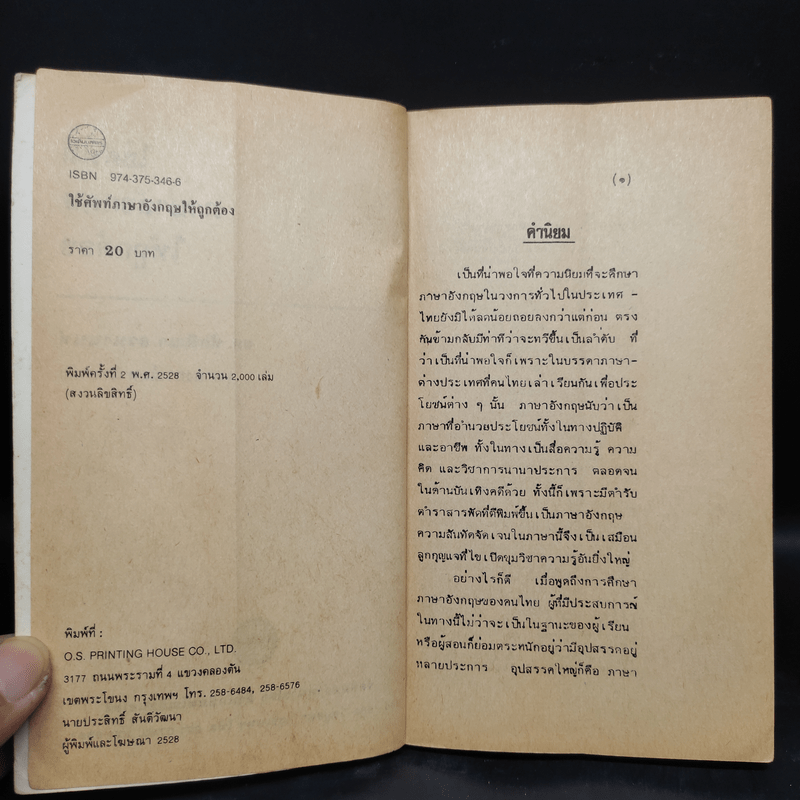 ISBN 974-375-346-6
ใช้ศัพท์ภาษาอังกฤษให้ถูกต้อง
ราคา 20 บาท
พิมพ์ครั้งที่ 2 พ.ศ. 2528 จำนวน 2,000 เล่ม
(สงวนลิขสิทธิ์)
พิมพ์ที่ :
O.S. PRINTING HOUSE CO., LTD.
3177 ถนนพระรามที่ 4 แขวงคลองตัน
เขตพระโขนง กรุงเทพฯ โทร. 258-6484, 258-6576
นายประสิทธิ์ สันติวัฒนา
ผู้พิมพ์และโฆษณา 2528
(๑)
คำนิยม
เป็นที่น่าพอใจที่ความนิยมที่จะศึกษา
ภาษาอังกฤษในวงการทั่วไปในประเทศ -
ไทยยังมิได้ลดน้อยถอยลงกว่าแต่ก่อน ตรง
กันข้ามกลับมีท่าทีว่าจะทวีขึ้นเป็นลำดับ ที่
ว่าเป็นที่น่าพอใจก็เพราะในบรรดาภาษา-
ต่างประเทศที่คนไทยเล่าเรียนกันเพื่อประ
โยชน์ต่าง ๆ นั้น ภาษาอังกฤษนับว่าเป็น
ภาษาที่อำนวยประโยชน์ทั้งในทางปฏิบัติ
และอาชีพ ทั้งในทางเป็นสื่อความรู้ ความ
คิด และวิชาการนานาประการ ตลอดจน
ในด้านบันเทิงคดีด้วย ทั้งนี้ก็เพราะมีตำรับ
ตำราสารพัดที่ตีพิมพ์ขึ้นเป็นภาษาอังกฤษ
ความสันทัดจัดเจนในภาษานี้จึงเป็นเสมือน
ลูกกุญแจที่ไขเปิดขุมวิชาความรู้อันยิ่งใหญ่
อย่างไรก็ดี เมื่อพูดถึงการศึกษา
ภาษาอังกฤษของคนไทย ผู้ที่มีประสบการณ์
ในทางนี้ไม่ว่าจะเป็นในฐานะของผู้เรียน
หรือผู้สอนก็ย่อมตระหนักอยู่ว่ามีอุปสรรคอยู่
หลายประการ อุปสรรคใหญ่ก็คือ ภาษา